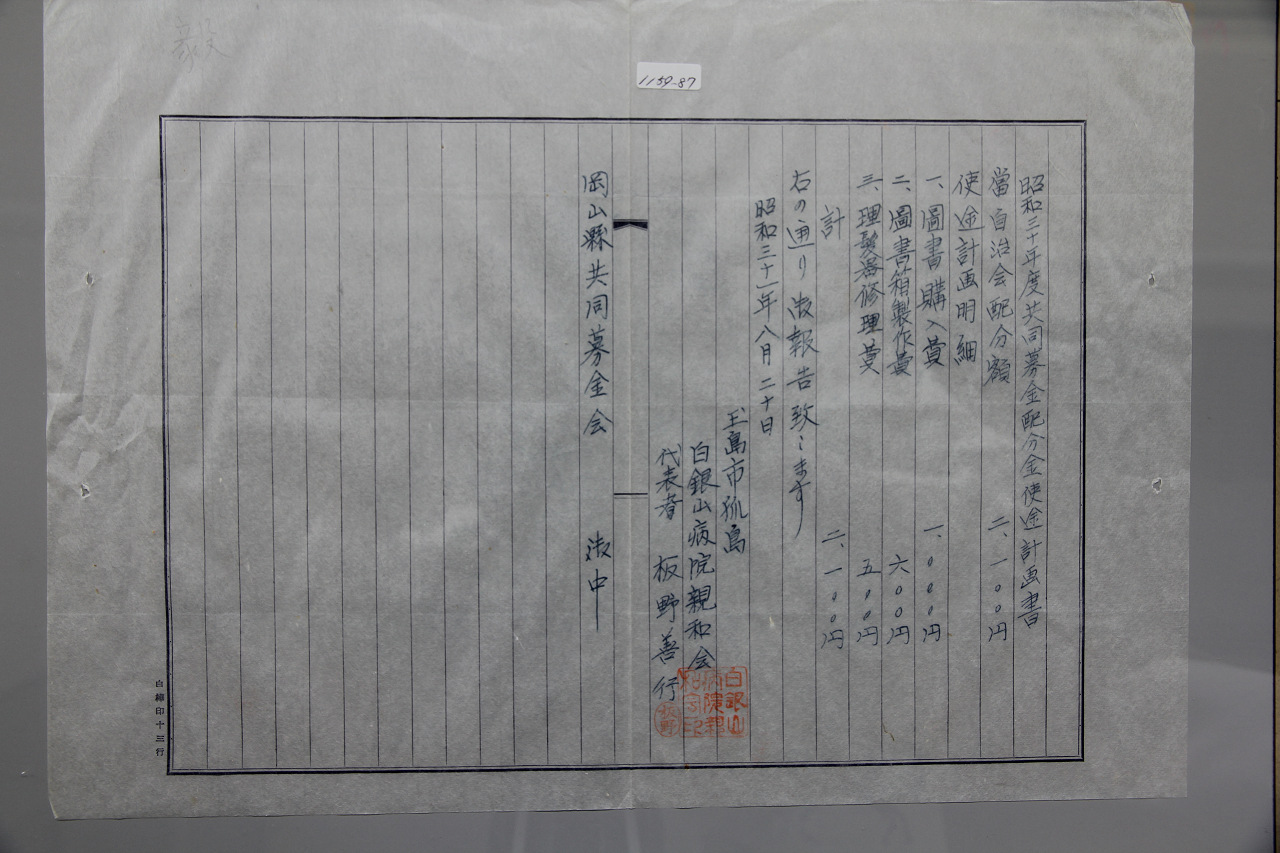 1159-87
昭和三十年度共同募金配分金使途計画書
當自治会配分額 二、一〇〇円
使途計画明細
一、圖書購入費 一、〇〇〇円
二、圖書箱製作費 六〇〇円
三、理髪器修理費 五〇〇円
計 二、一〇〇円
右の通り御報告致します
昭和三十一年八月二十日
玉島市狐島
白銀山病院親和会
代表者 板野善行
白銀山病院親和会印
板野
岡山縣共同募金会 御中
白樺印十三行